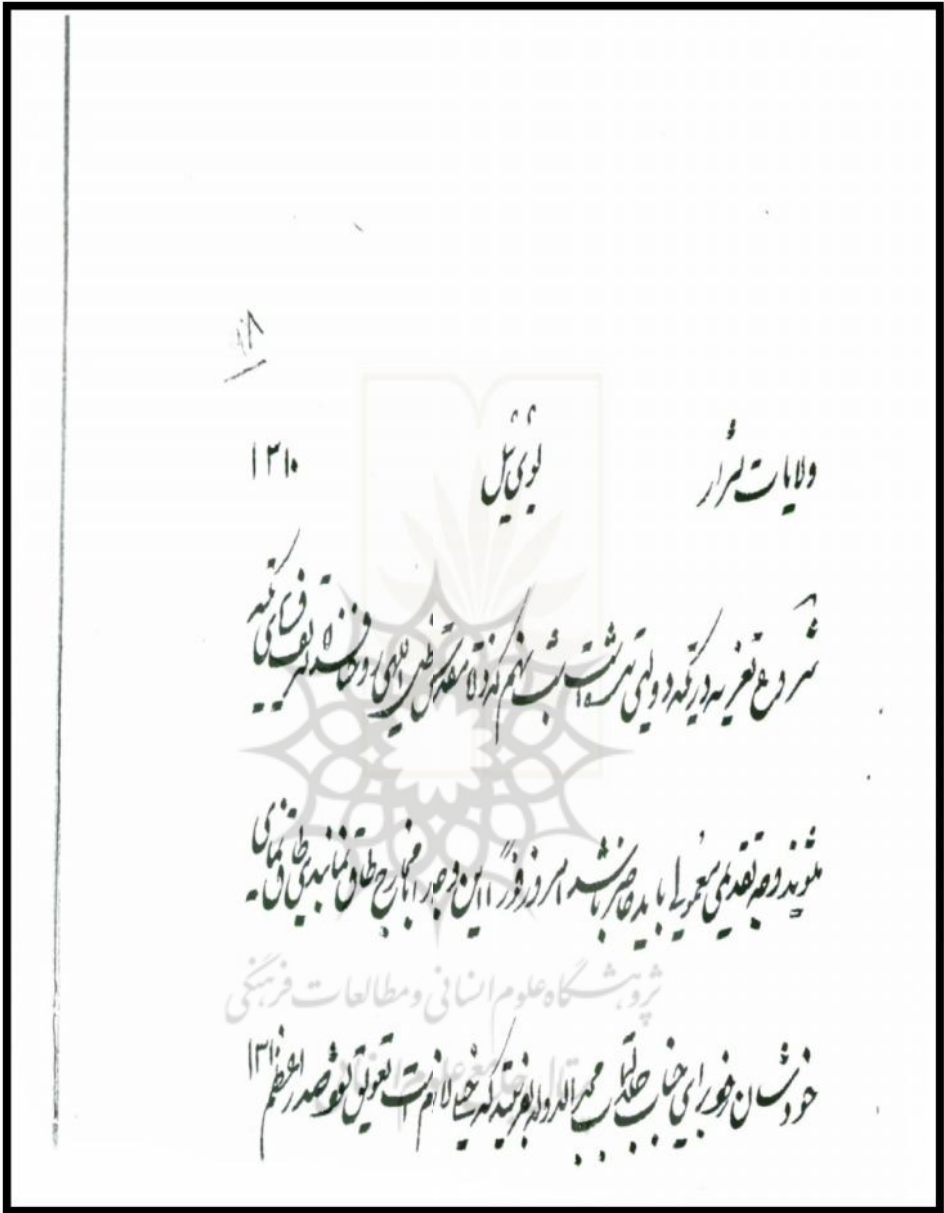 ۹۸
ولایات شرار لوی ئیل ۱۳۱۰
شروع تعزیه در تکیه دولتی شب است شب نهم که ذات مقدس ظل اللهی روحنا فداه تشریف فرمای تکیه
میشوند وجه تقدیمی معمولی باید حاضر باشد امروز فوراً این وجه را با مخارج طاق نما بندی طاق نمای
خودشان فوراً برای جناب جلالتمآب مجدالدوله بفرستید که خیلی لازم است تعویق نشود صدراعظم ۱۳۱۰
پژوهشگاه علوم انسانی و مطالعات فرهنگی
پرتال جامع علوم انسانی